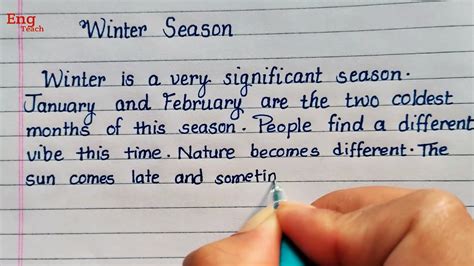 Eng
Teach
Winter Season
Winter is a very significant season.
January and February are the two coldest
months of this season. People find a different
vibe this time. Nature becomes different. The
sun comes late and sometin